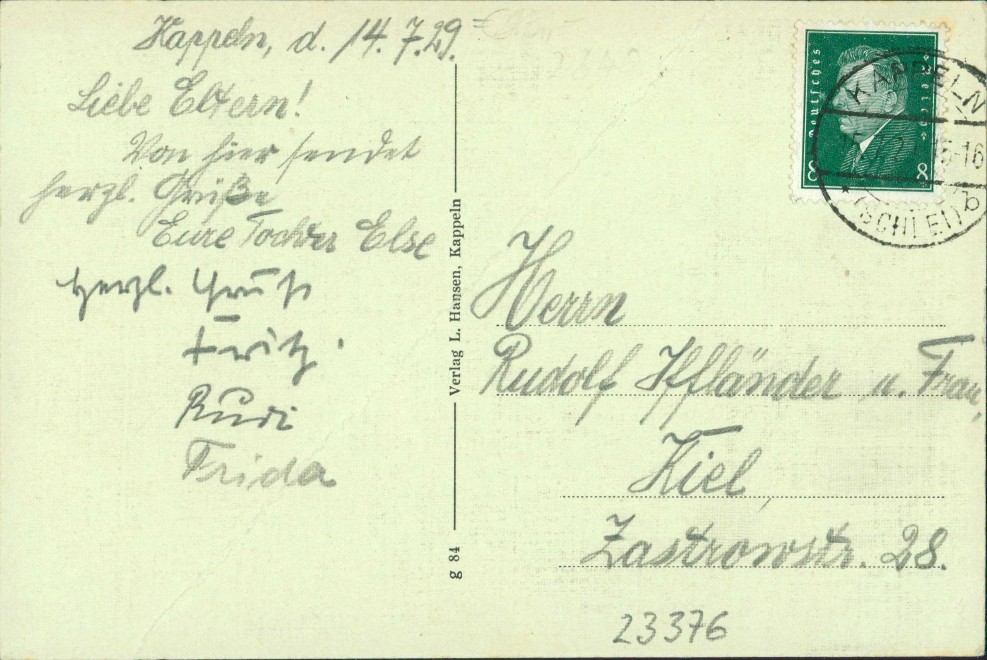 Kappeln, d. 14.7.29.
Liebe Eltern!
Von hier sendet
herzl. Grüße
Eure Tochter Else
herzl. Gruß
Fritz.
Rudi
Frida
g 84 Verlag L. Hansen, Kappeln
Deutsches Reich
8 8
KAPPELN
15-16
(SCHLEI) b
Herrn
Rudolf Iffländer u. Frau,
Kiel,
Zastrowstr. 28.
23376